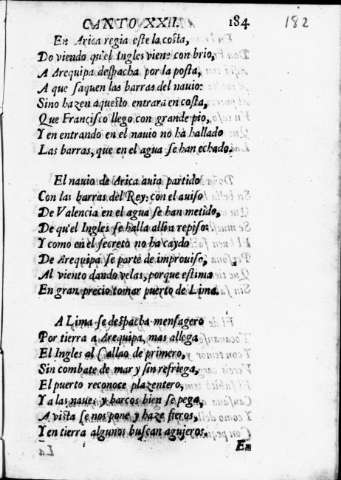 CANTO XXII. 184 182
En Arica regia este la costa,
Do viendo qu'el Ingles viene con brio,
A Arequipa despacha por la posta,
A que saquen las barras del nauio:
Sino hazen aquesto entrara en costa,
Que Francisco llego con grande pio,
Y en entrando en el nauio no ha hallado
Las barras, que en el agua se han echado.
El nauio de Arica auia partido
Con las barras del Rey: con el auiso
De Valencia en el agua se han metido,
De qu'el Ingles se halla allon repiso:
Y como en el secreto no ha caydo
De Arequipa se parte de improuiso,
Al viento dando velas, porque estima
En gran precio tomar puerto de Lima.
A Lima se despacha mensagero
Por tierra a Arequipa, mas allega
El Ingles al Callao de primero,
Sin combate de mar y sin refriega,
El puerto reconoce plazentero,
Y a las naues y barcos bien se pega,
A vista se nos pone y haze fieros,
Y en tierra algunos buscan agujeros.
En